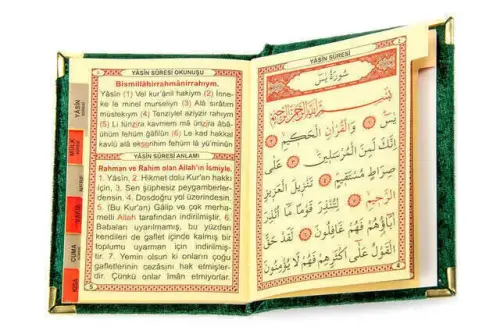 YÂSÎN SÛRESİ OKUNUŞU
Bismillâhirrahmânirrahym.
Yâsîn (1) Vel kur'ânil hakiym (2) İnne-
ke le minel murseliyn (3) Alâ sırâtım
müstekıym (4) Tenziylel aziyzir rahıym
(5) Li tünzira kavmem mâ ünzira âbâ-
ühüm fehüm gâfilûn (6) Le kad hakkal
kavlü alâ ekserihim fehüm lâ yü'minûn
YÂSÎN SÛRESİ ANLAMI
Rahman ve Rahim olan Allah'ın İsmiyle.
1. Yâsîn, 2. Hikmet dolu Kur'an hakkı
için, 3. Sen şüphesiz peygamberler-
densin. 4. Dosdoğru yol üzerindesin.
5. (Bu Kur'an) Gâlip ve çok merha-
metli Allah tarafından indirilmiştir. 6.
Babaları uyarılmamış, bu yüzden
kendileri de gaflet içinde kalmış bir
toplumu uyarman için indirilmiş-
tir. 7. Yemin olsun ki onların çoğu
gafletlerinin cezasını hak etmişler-
dir. Çünkü onlar îman etmiyorlar.
5
YÂSİN
MÜLK
NEBE
CUMA
KISA
YÂSÎN SÛRESİ
سُورَةُ يٰسٓ
بِسْمِ اللّٰهِ الرَّحْمٰنِ الرَّحِيمِ
يٰسٓ وَالْقُرْاٰنِ الْحَكِيمِ
اِنَّكَ لَمِنَ الْمُرْسَلِينَ عَلٰى
صِرَاطٍ مُسْتَقِيمٍ تَنْزِيلَ الْعَزِيزِ
الرَّحِيمِ لِتُنْذِرَ قَوْمًا مَٓا اُنْذِرَ
اٰبَٓاؤُهُمْ فَهُمْ غَافِلُونَ لَقَدْ حَقَّ
الْقَوْلُ عَلٰٓى اَكْثَرِهِمْ فَهُمْ لَا يُؤْمِنُونَ
4